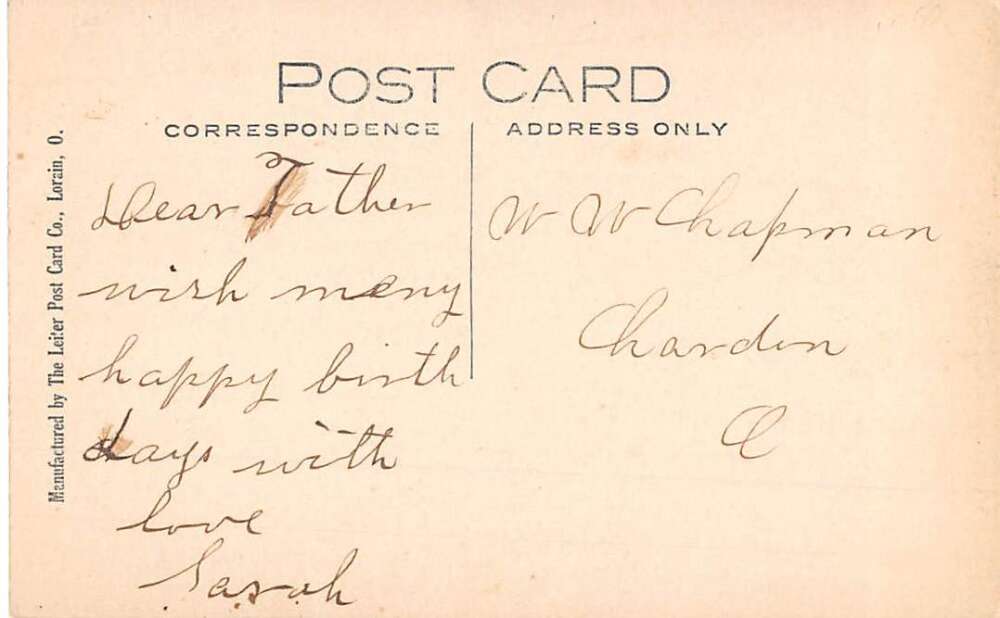 POST CARD
CORRESPONDENCE
ADDRESS ONLY
Manufactured by The Leiter Post Card Co., Lorain, O.
Dear Father
wish many
happy birth
days with
love
Sarah
W W Chapman
Chardon
O